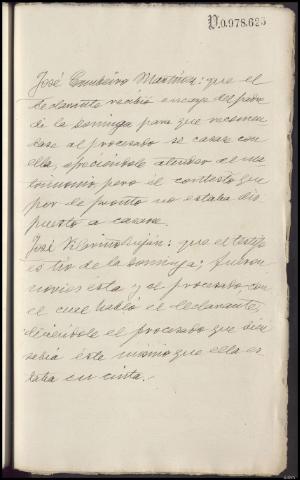 N.0.978.625
José Martínez: que el
declarante recibió encargo del padre
de la Dominga para que recomen
dase al procesado se casase con
ella, ofreciéndole atender al ma
trimonio pero él contestó que
por de pronto no estaba dis
puesto a casarse
José: que el testigo
es tío de la Dominga; fueron
novios ésta y el procesado con
el cual habló el declarante,
diciéndole el procesado que
sabía éste mismo que ella es
taba en cinta.